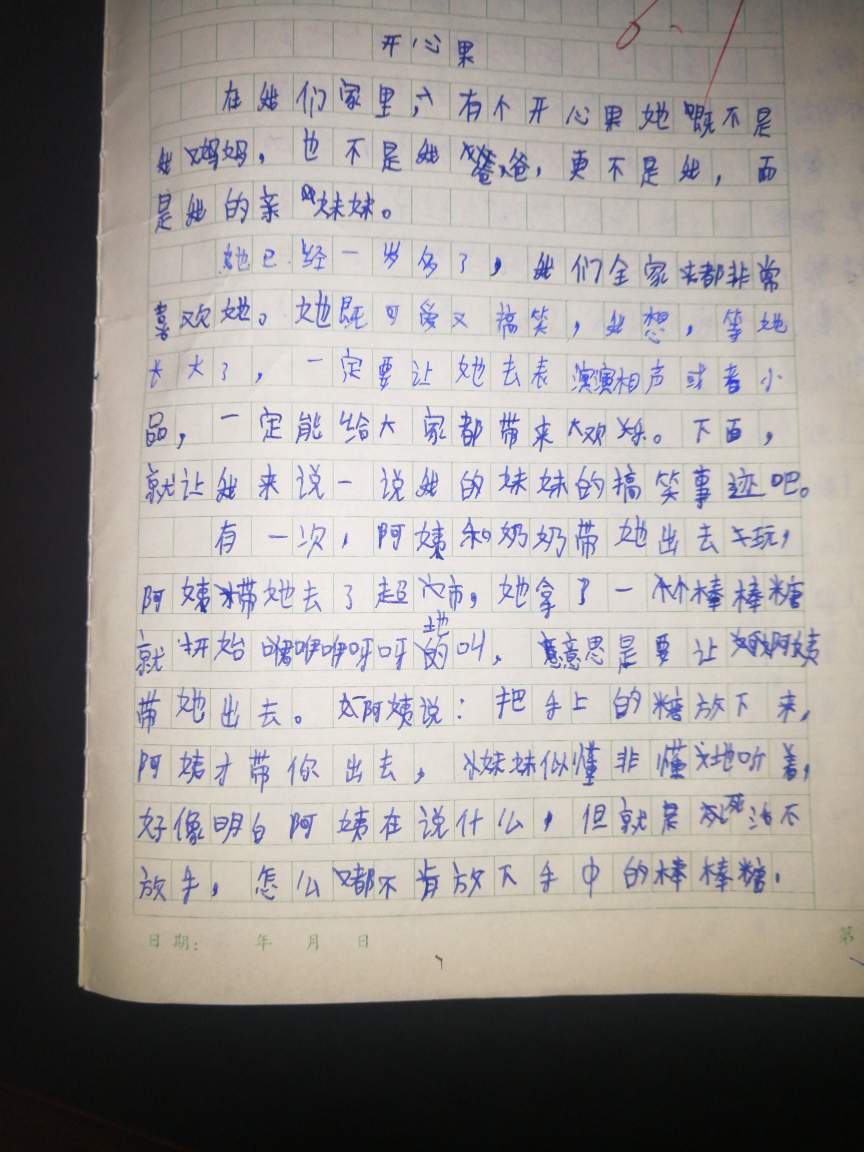 开心果
在我们家里，有个开心果她既不是
我妈妈，也不是我爸爸，更不是我，而
是我的亲妹妹。
她已经一岁多了，我们全家都非常
喜欢她。她既可爱又搞笑，我想，等她
长大了，一定要让她去表演相声或者小
品，一定能给大家都带来欢乐。下面，
就让我来说一说我的妹妹的搞笑事迹吧。
有一次，阿姨和奶奶带她出去玩，
阿姨带她去了超市，她拿了一个棒棒糖
就开始咿咿呀呀地的叫，意思是要让阿姨
带她出去。阿姨说：把手上的糖放下来，
阿姨才带你出去，妹妹似懂非懂地听着，
好像明白阿姨在说什么，但就是死活不
放手，怎么都不肯放下手中的棒棒糖.
日期： 年 月 日
第